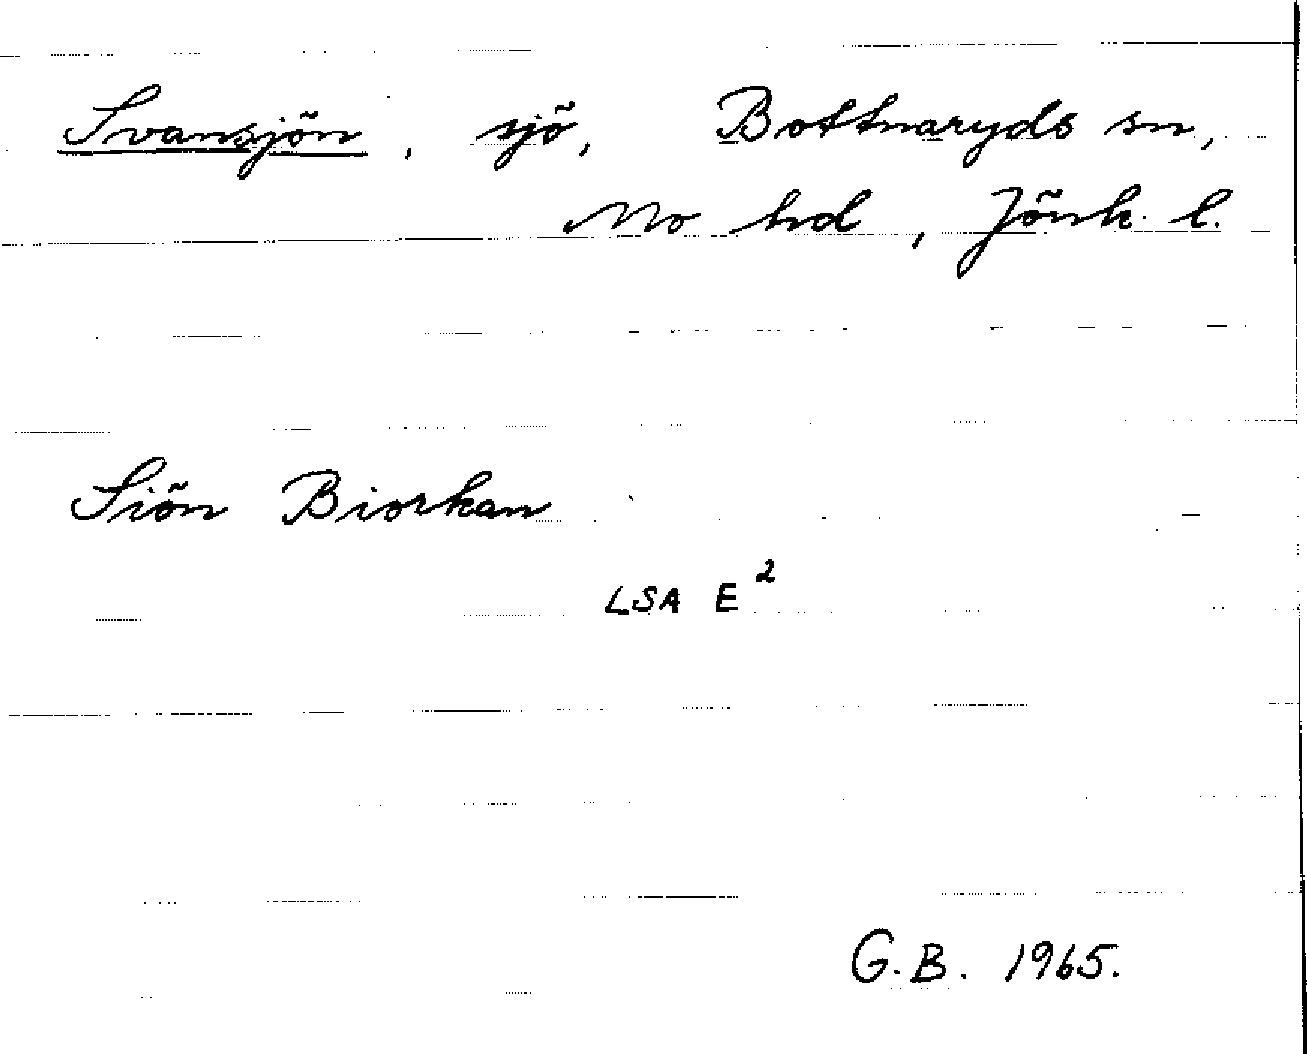 Svansjön, sjö, Bottnaryds sn,
Mo hd, Jönk. l.
Siön Biorkan
LSA E²
G.B. 1965.